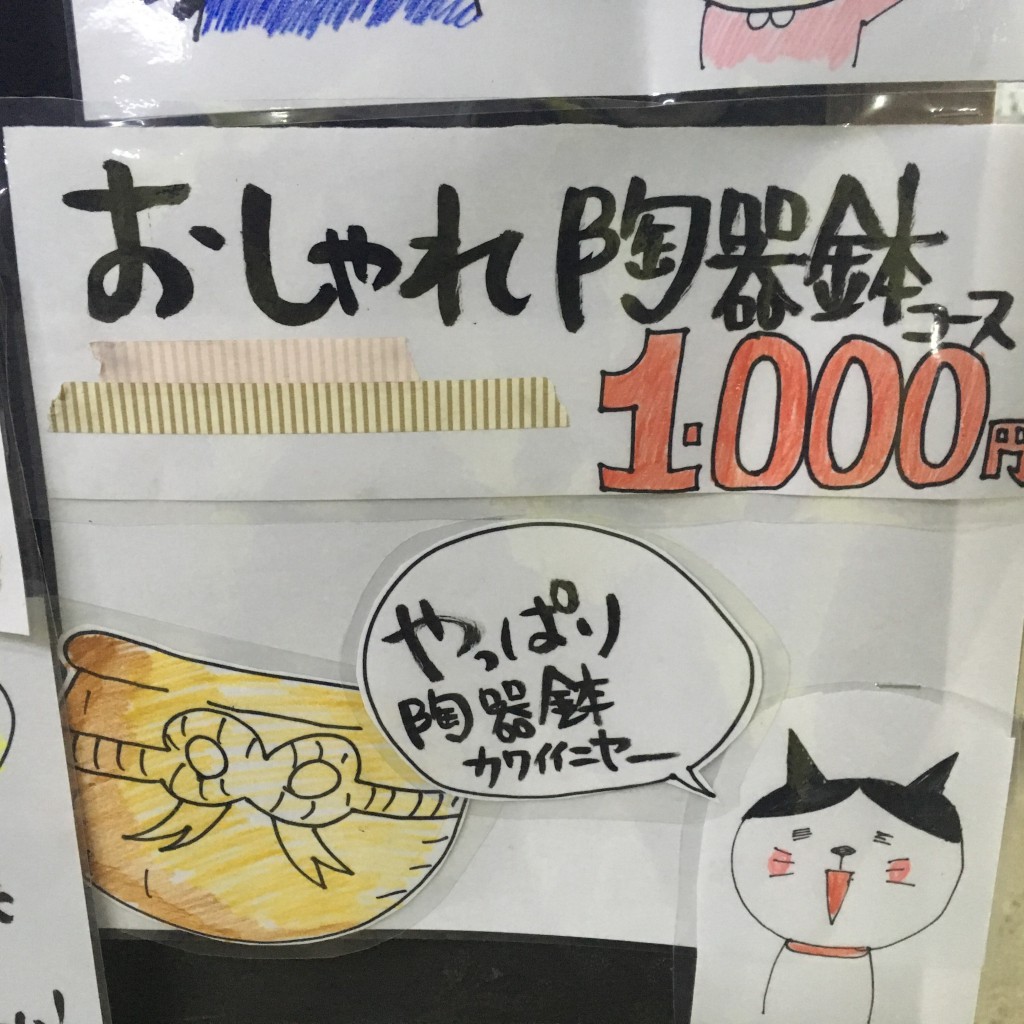 おしゃれ陶器鉢コース
1.000円
やっぱり
陶器鉢
カワイイニャー